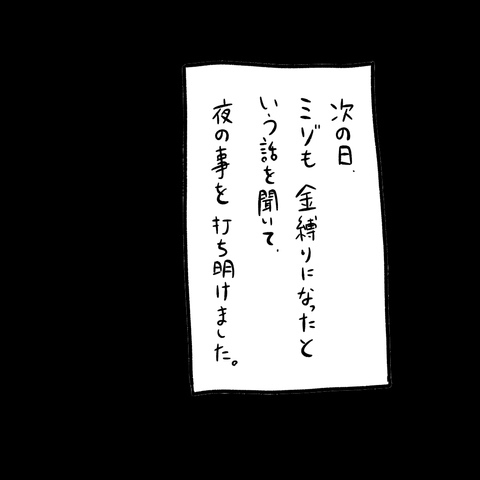 次の日、
ミゾも 金縛りになったと
いう話を聞いて、
夜の事を 打ち明けました。